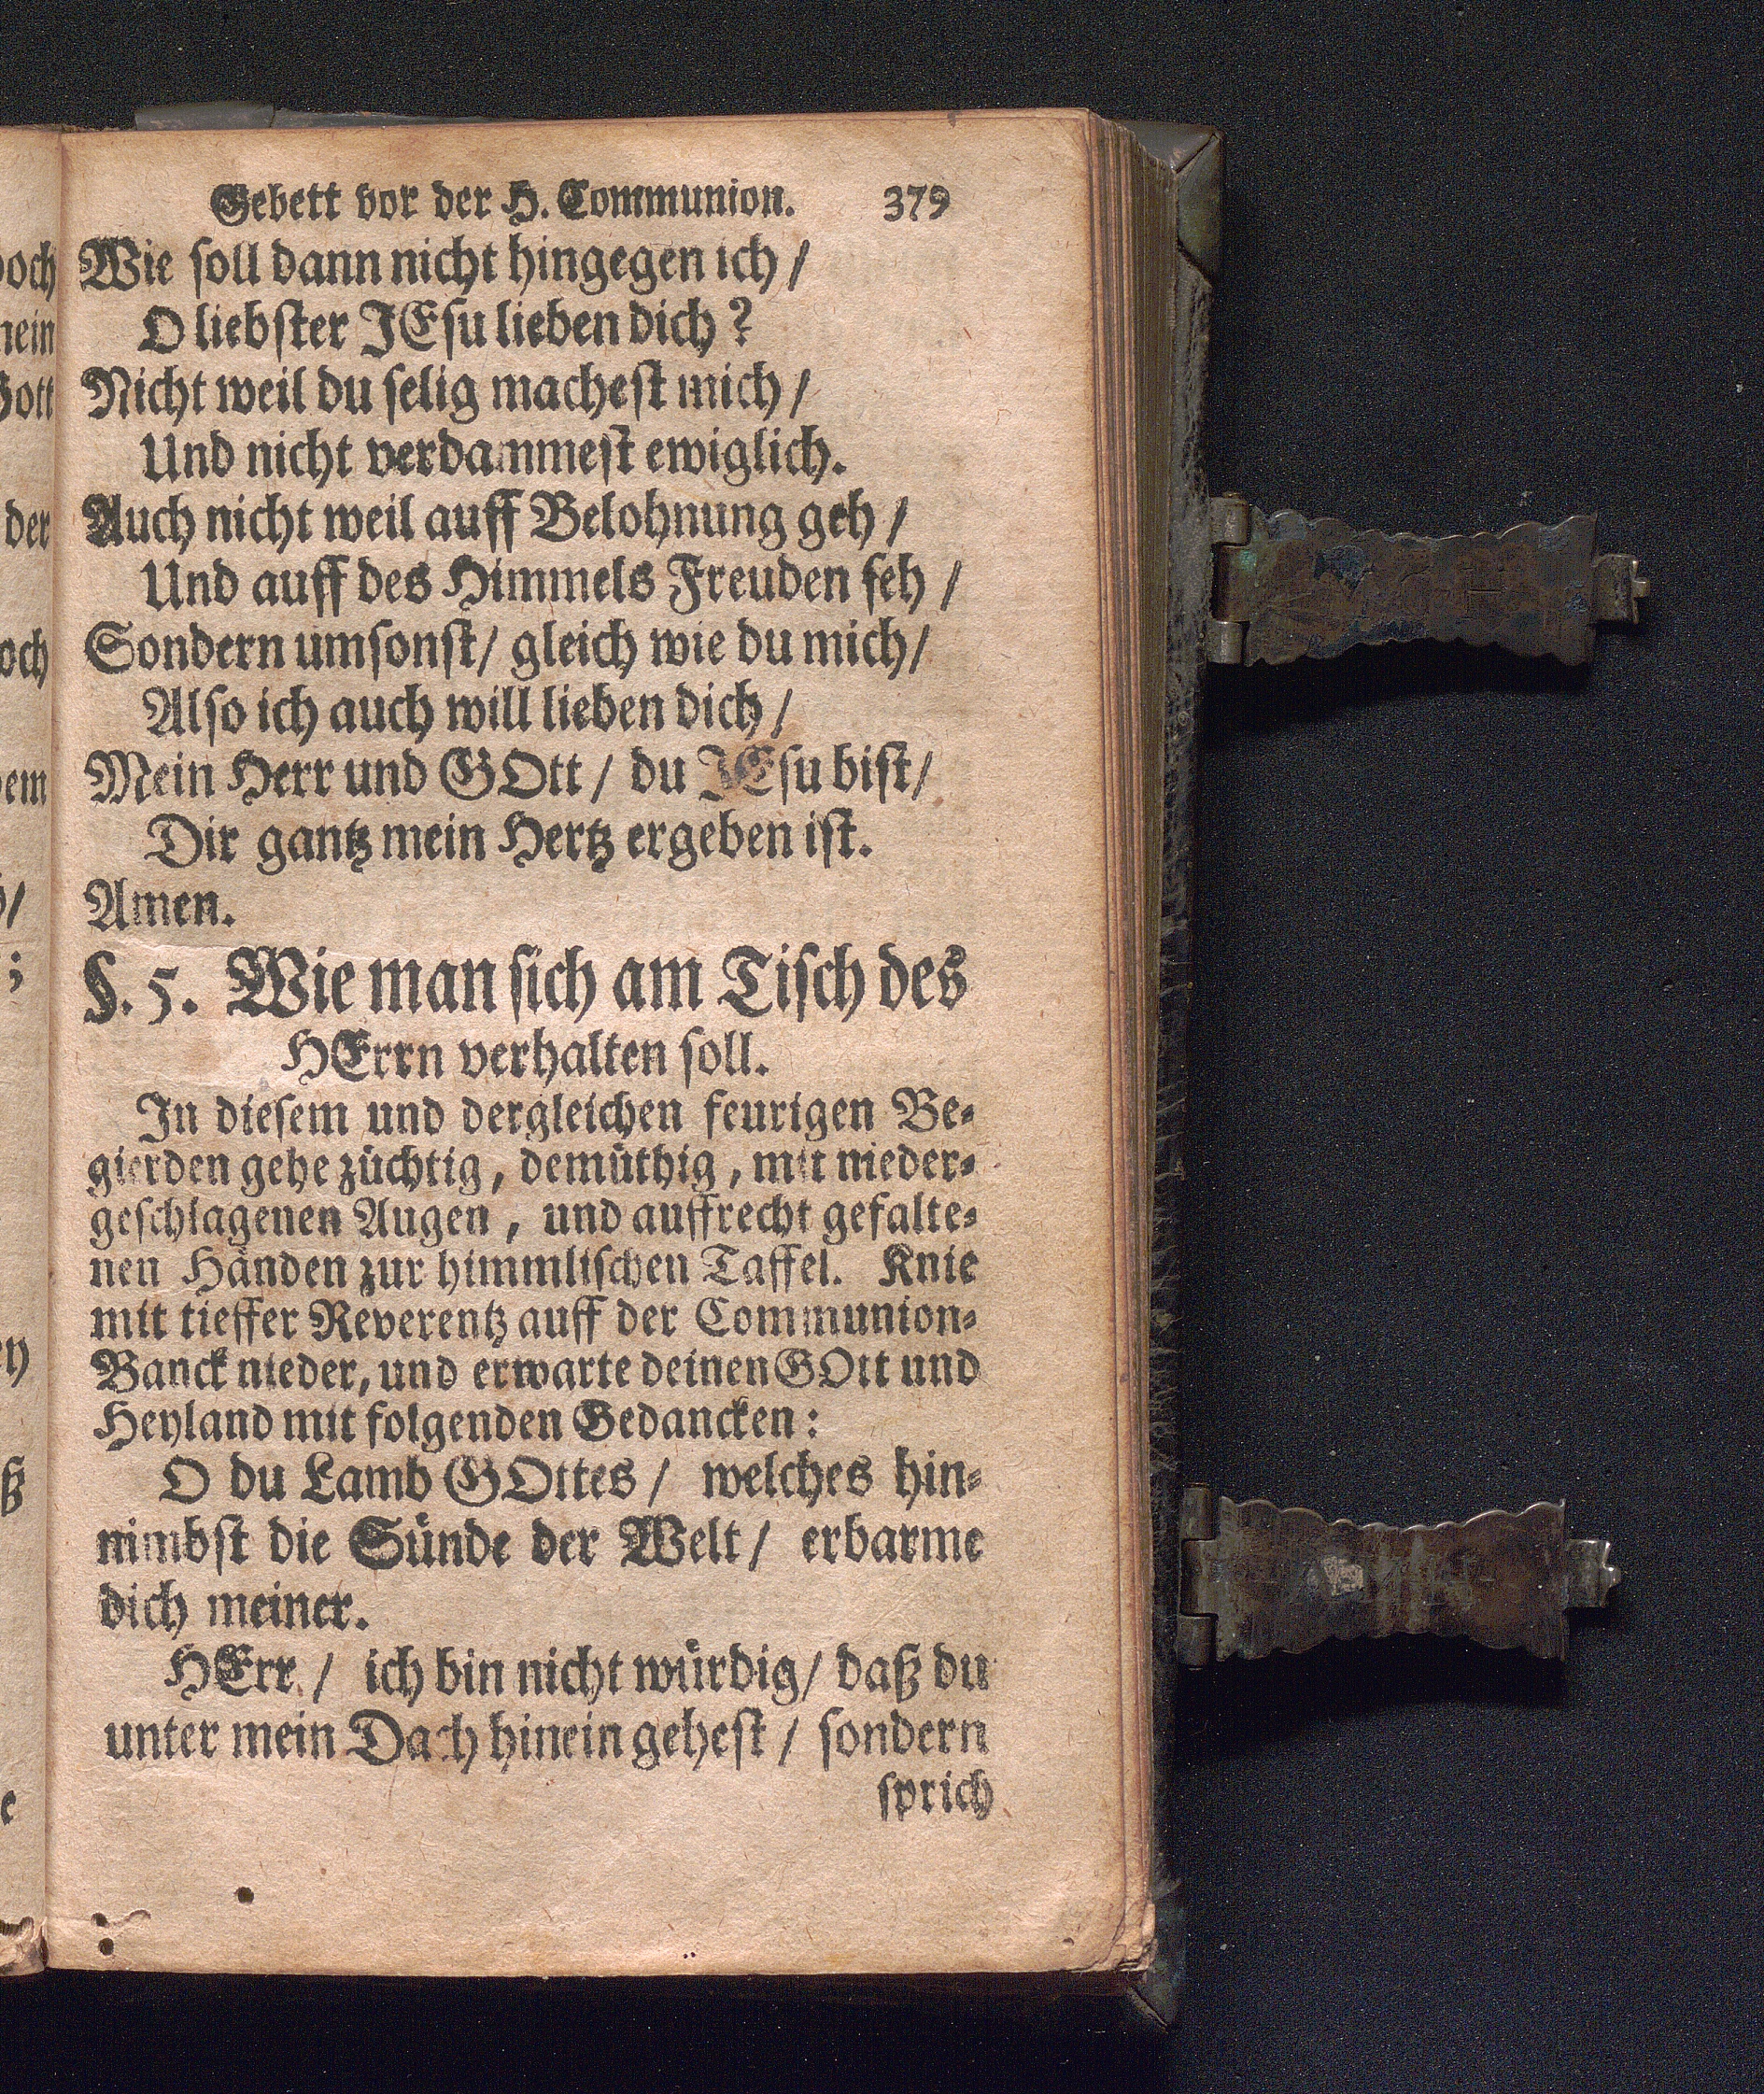 Gebett vor der H. Communion. 379
Wie soll dann nicht hingegen ich /
O liebster JEsu lieben dich ?
Nicht weil du selig machest mich /
Und nicht verdammest ewiglich.
Auch nicht weil auff Belohnung geh /
Und auff des Himmels Freuden seh /
Sondern umsonst / gleich wie du mich /
Also ich auch will lieben dich /
Mein Herr und GOtt / du JEsu bist /
Dir gantz mein Hertz ergeben ist.
Amen.
§. 5. Wie man sich am Tisch des
HErrn verhalten soll.
In diesem und dergleichen feurigen Be-
gierden gehe züchtig, demüthig, mit nieder-
geschlagenen Augen, und auffrecht gefalte-
nen Händen zur himmlischen Taffel. Knie
mit tieffer Reverentz auff der Communion-
Banck nieder, und erwarte deinen GOtt und
Heyland mit folgenden Gedancken:
O du Lamb GOttes / welches hin-
nimbst die Sünde der Welt / erbarme
dich meiner.
HErr / ich bin nicht würdig / daß du
unter mein Dach hinein gehest / sondern
sprich